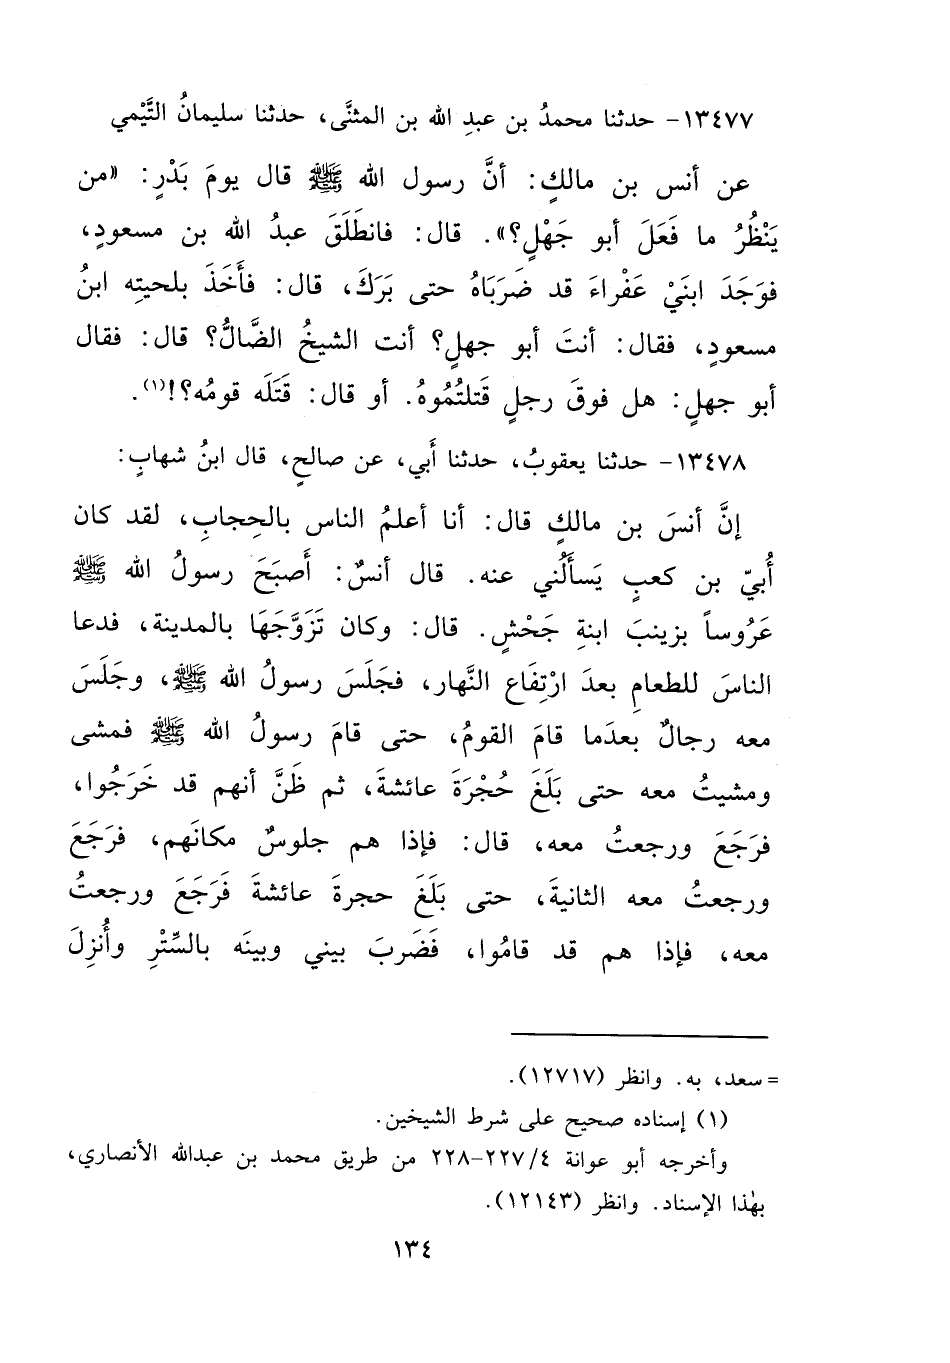 ١٣٤٧٧- حدثنا محمدُ بن عبدِ الله بن المثنَّى، حدثنا سليمانُ التَّيْمي
عن أنس بن مالكٍ: أنَّ رسول الله ﷺ قال يومَ بَدْرٍ: «من
يَنْظُرُ ما فَعَلَ أبو جَهْلٍ؟». قال: فانطَلَقَ عبدُ الله بن مسعودٍ،
فوَجَدَ ابنَيْ عَفْراءَ قد ضَرَبَاهُ حتى بَرَكَ، قال: فأَخَذَ بلحيتِه ابنُ
مسعودٍ، فقال: أنتَ أبو جهلٍ؟ أنت الشيخُ الضَّالُّ؟ قال: فقال
أبو جهلٍ: هل فوقَ رجلٍ قَتلتُمُوهُ. أو قال: قَتَلَه قومُه؟!(١).
١٣٤٧٨- حدثنا يعقوبُ، حدثنا أَبي، عن صالحٍ، قال ابنُ شهابٍ:
إنَّ أنسَ بن مالكٍ قال: أنا أعلمُ الناس بالحِجابِ، لقد كان
أُبيّ بن كعبٍ يَسأَلُني عنه. قال أنسٌ: أَصبَحَ رسولُ الله ﷺ
عَرُوساً بزينبَ ابنةِ جَحْشٍ. قال: وكان تَزَوَّجَهَا بالمدينة، فدعا
الناسَ للطعامِ بعدَ ارْتِفَاع النَّهار، فجَلَسَ رسولُ الله ﷺ، وجَلَسَ
معه رجالٌ بعدَما قامَ القومُ، حتى قامَ رسولُ الله ﷺ فمشى
ومشيتُ معه حتى بَلَغَ حُجْرَةَ عائشةَ، ثم ظَنَّ أنهم قد خَرَجُوا،
فرَجَعَ ورجعتُ معه، قال: فإذا هم جلوسٌ مكانَهم، فرَجَعَ
ورجعتُ معه الثانيةَ، حتى بَلَغَ حجرةَ عائشةَ فَرَجَعَ ورجعتُ
معه، فإذا هم قد قامُوا، فَضَربَ بيني وبينَه بالسِّتْرِ وأُنزِلَ
= سعد، به. وانظر (١٢٧١٧).
(١) إسناده صحيح على شرط الشيخين.
وأخرجه أبو عوانة ٤/٢٢٧-٢٢٨ من طريق محمد بن عبدالله الأنصاري،
بهٰذا الإسناد. وانظر (١٢١٤٣).
١٣٤